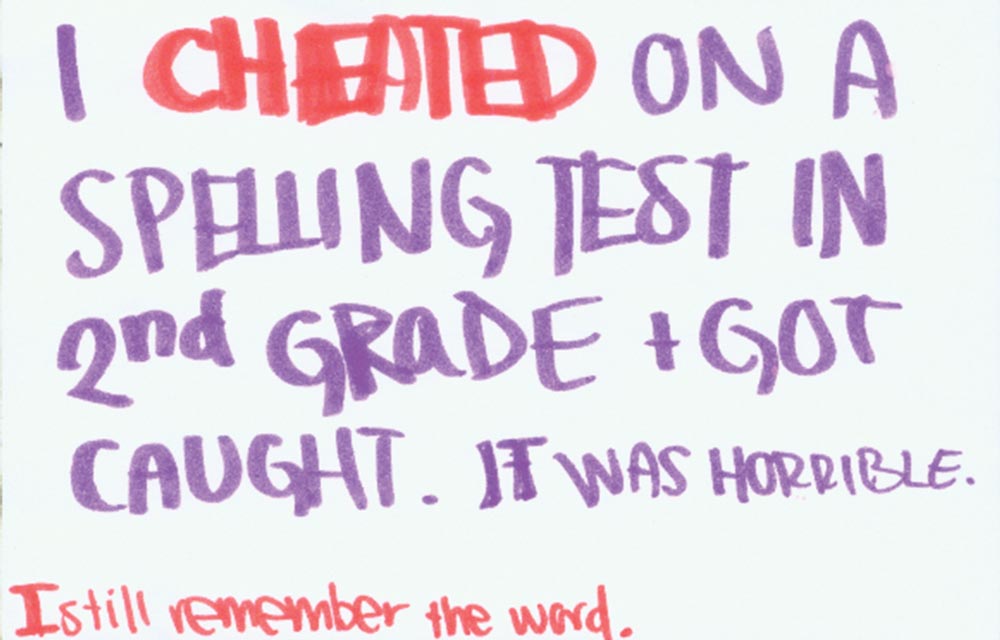 I CHEATED ON A
SPELLING TEST IN
2nd GRADE + GOT
CAUGHT. IT WAS HORRIBLE.
I still remember the word.